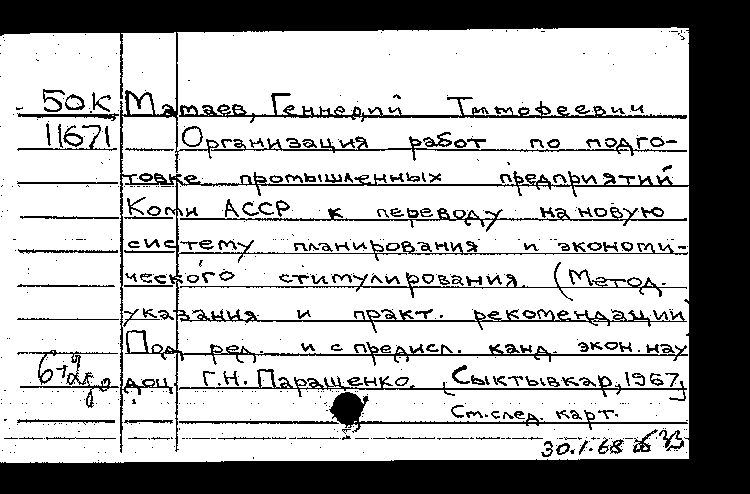 50К Матаев, Геннедий Тимофеевич
11671 Организация работ по подго-
товке промышленных предприятий
Коми АССР к переводу на новую
систему планирования и экономи-
ческого стимулирования. (Метод.
указания и практ. рекомендации
Под ред. и с предисл. канд. экон. нау
доц. Г.Н. Паращенко. [Сыктывкар, 1967]
См. след. карт.
30.1.68